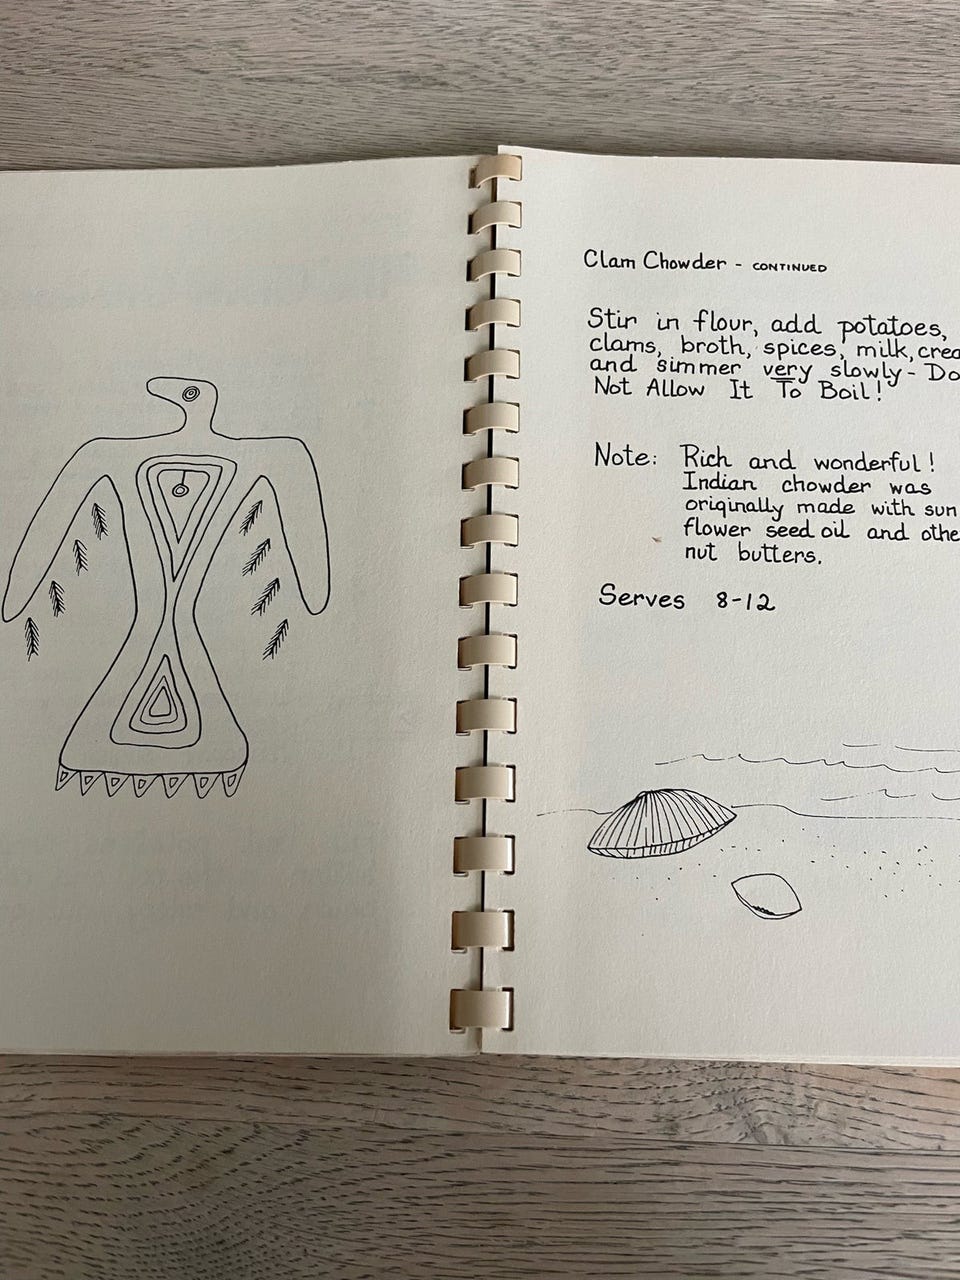 Clam Chowder - CONTINUED
Stir in flour, add potatoes,
clams, broth, spices, milk, crea
and simmer very slowly - Do
Not Allow It To Boil!
Note: Rich and wonderful!
Indian chowder was
originally made with sun
flower seed oil and othe
nut butters.
Serves 8-12